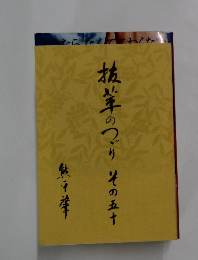 抜萃のつづり その五十
熊平肇